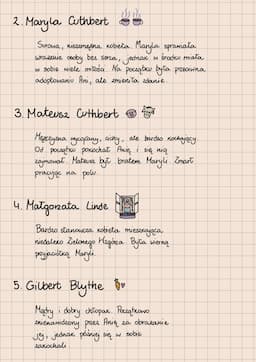 2. Maryla Cuthbert
Surowa, niezamężna kobieta. Maryla sprawiała
wrażenie osoby bez serca, jednak w środku miała
w sobie wiele miłości. Na początku była przeciwna
adoptowaniu Ani, ale zmieniła zdanie.
3. Mateusz Cuthbert
Mężczyzna wycofany, cichy, ale bardzo kochający.
Od początku pokochał Anię i się nią
zajmował. Mateusz był bratem Maryli. Zmarł
pracując na polu.
4. Małgorzata Linde
Bardzo stanowcza kobieta mieszkająca,
niedaleko Zielonego Wzgórza. Była wierną
przyjaciółką Maryli.
5. Gilbert Blythe
Mądry i dobry chłopak. Początkowo
znienawidzony przez Anię za obrażanie
jej, jednak później się w sobie
zakochali.